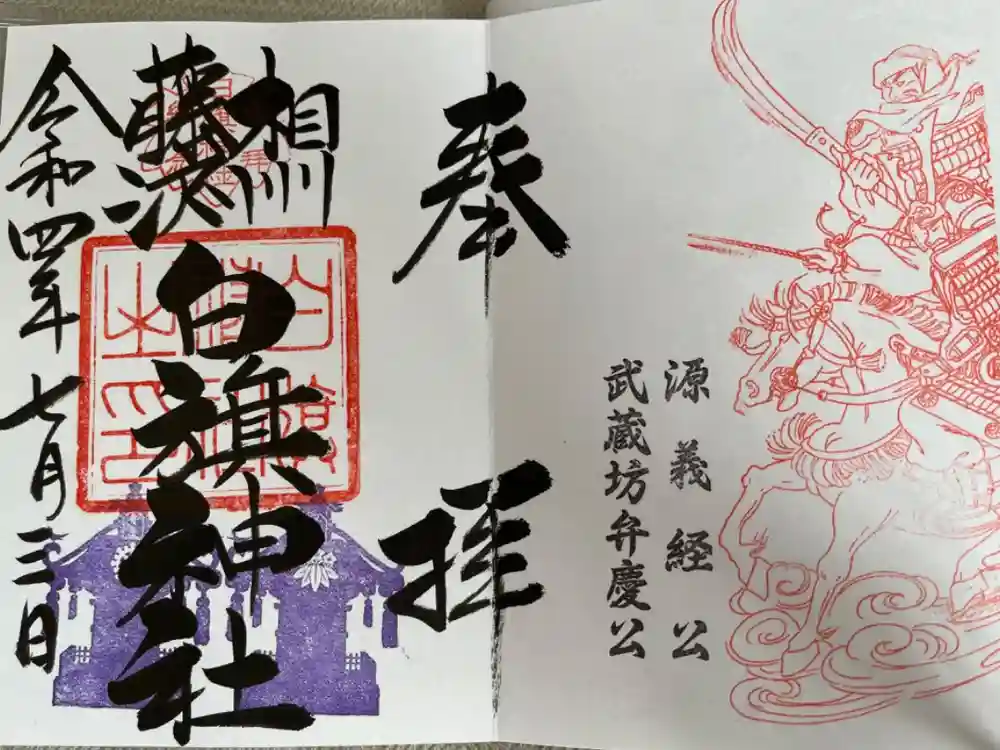 源義経公
武蔵坊弁慶公
奉拝
相州
藤沢
白旗神社
令和四年七月三日